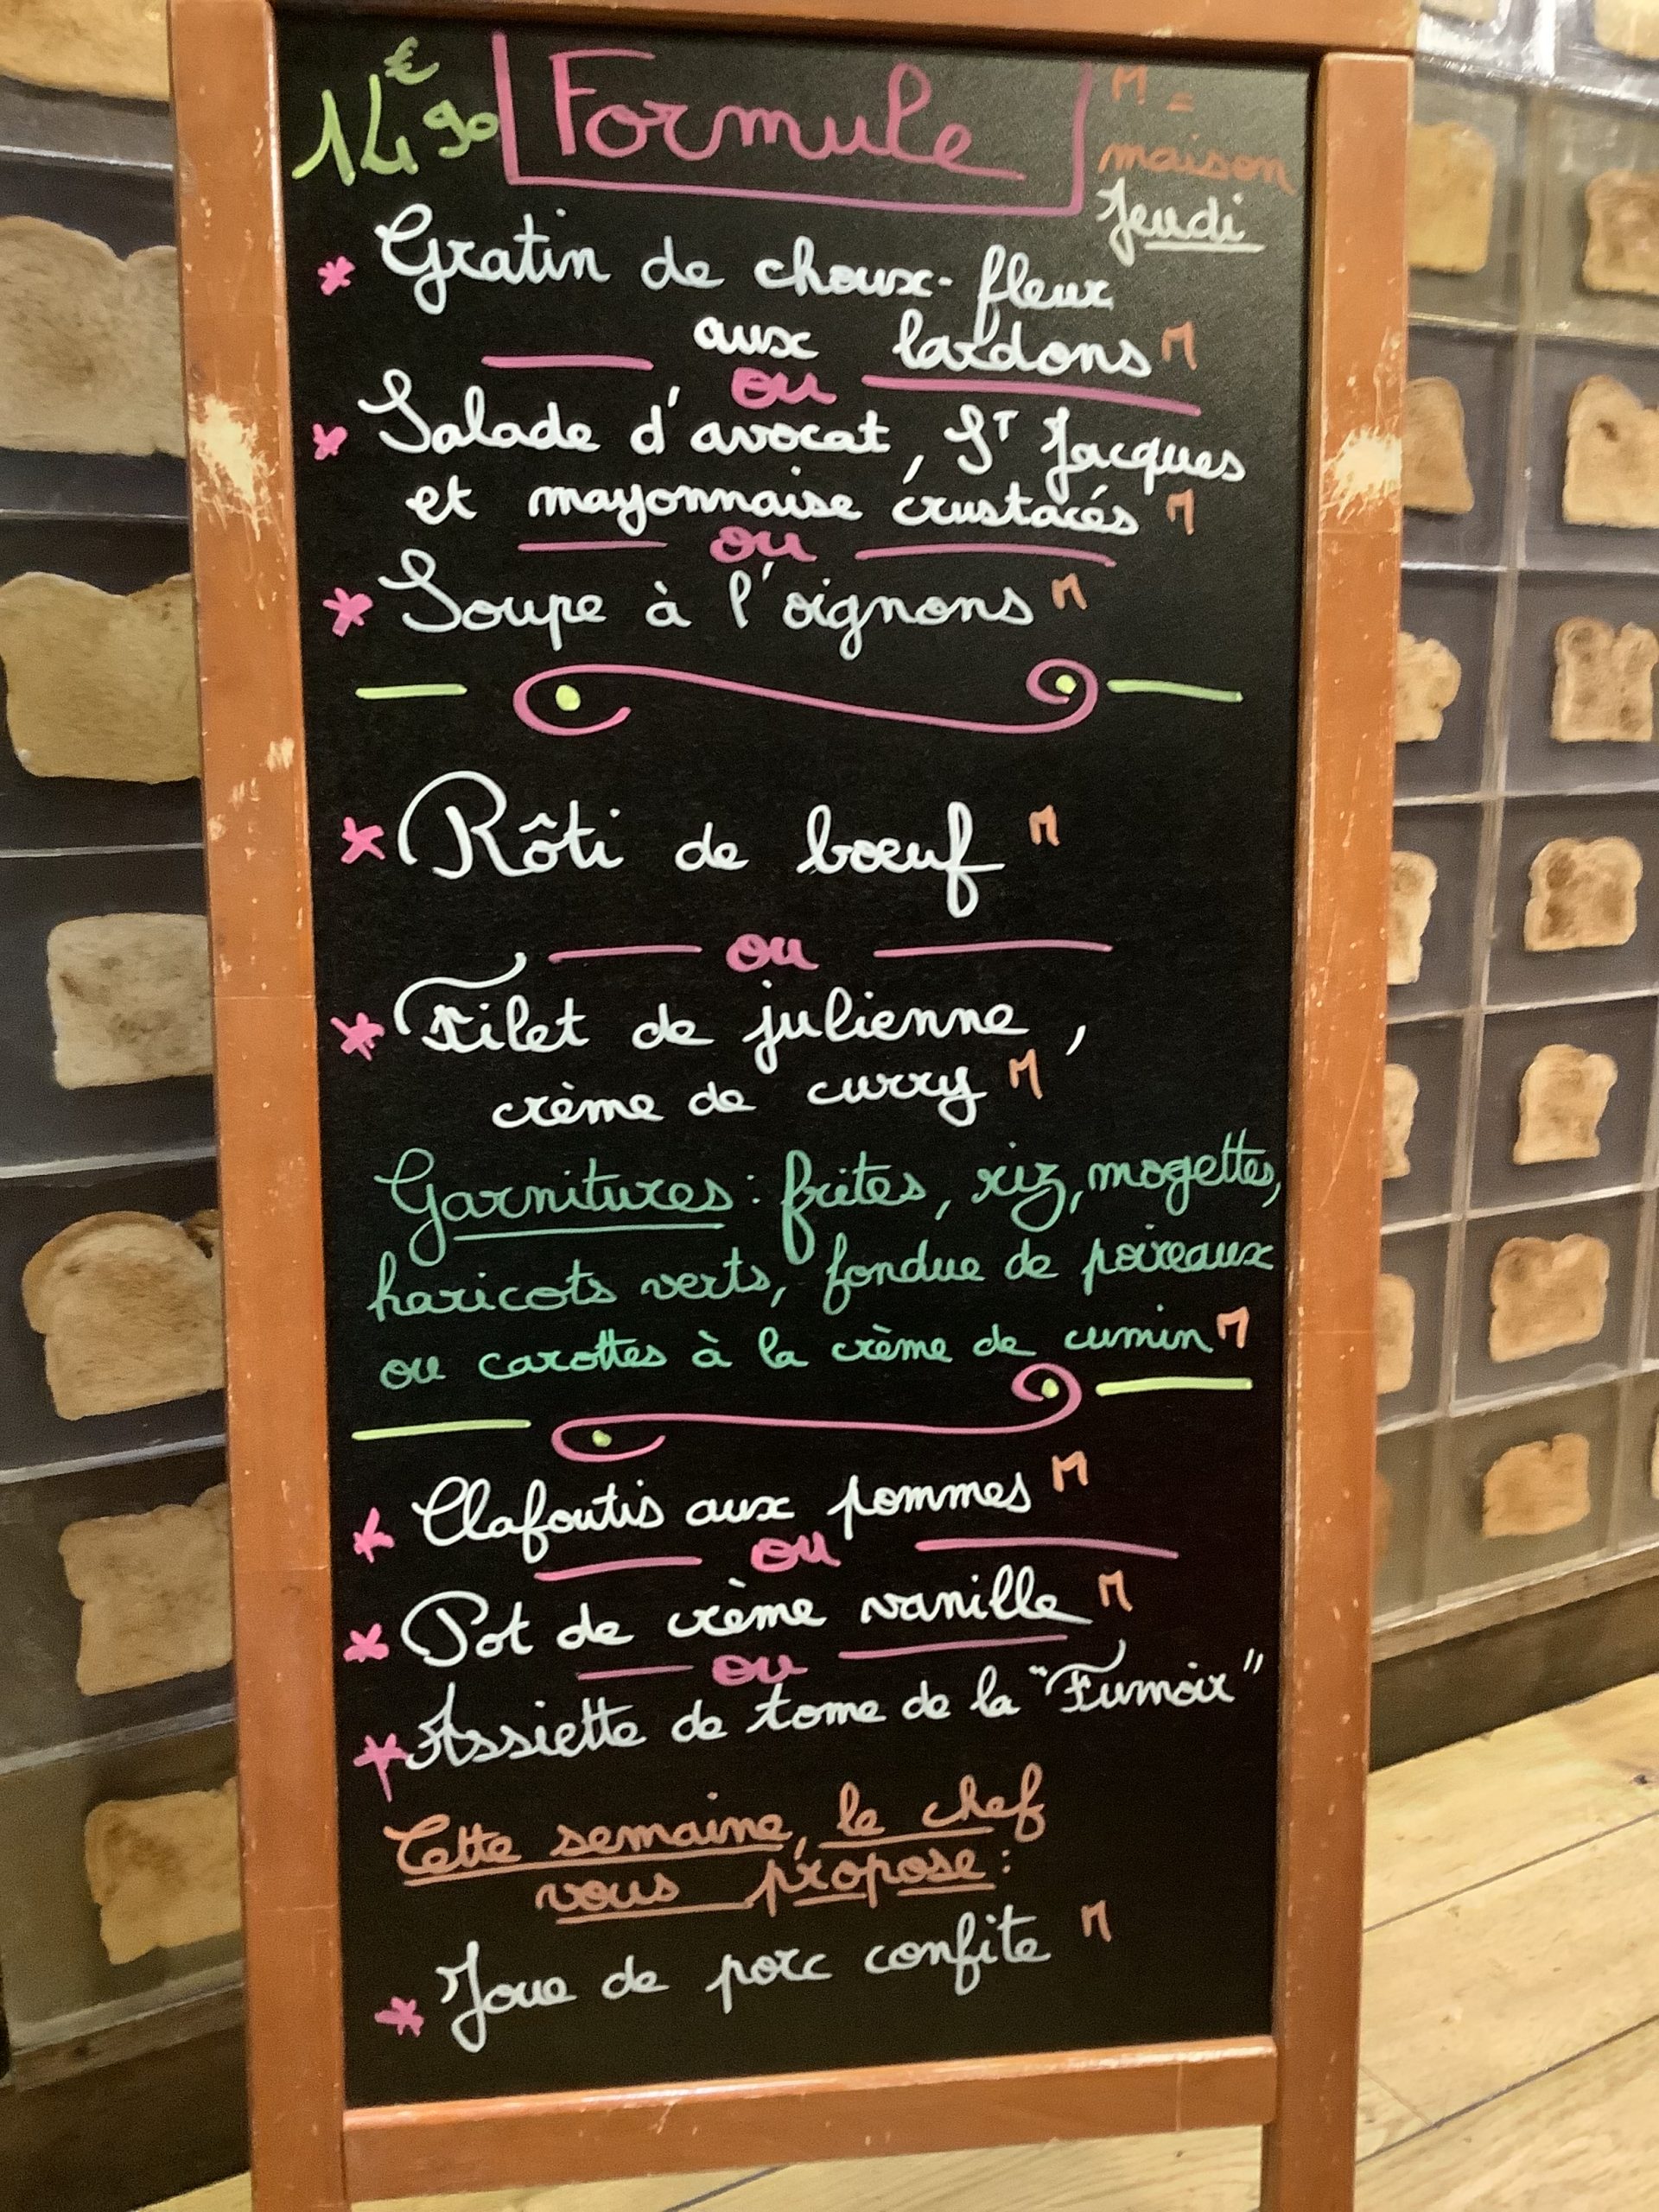 14€90 Formule M = maison
Jeudi
* Gratin de choux-fleur
aux lardons M
ou
* Salade d'avocat, ST Jacques
et mayonnaise crustacés M
ou
* Soupe à l'oignons M
* Rôti de bœuf M
ou
* Filet de julienne,
crème de curry M
Garnitures : frites, riz, mogettes,
haricots verts, fondue de poireaux
ou carottes à la crème de cumin M
* Clafoutis aux pommes M
ou
* Pot de crème vanille M
ou
* Assiette de tome de la "Fumoir"
Cette semaine, le chef
vous propose :
* Joue de porc confite M